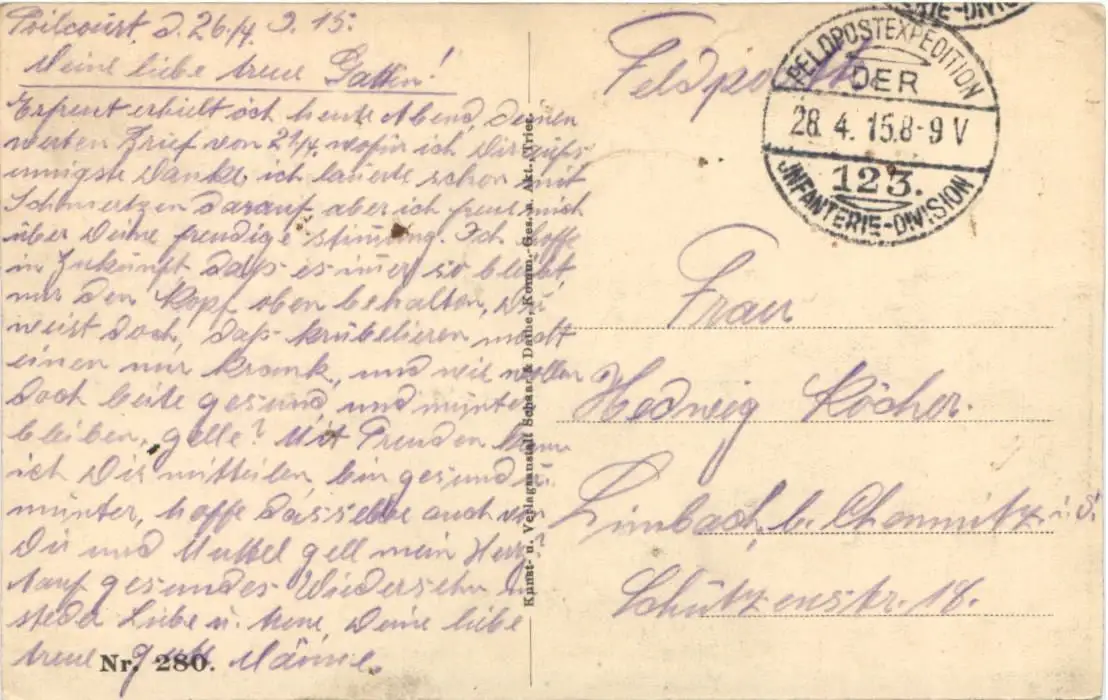 Poilcourt, d. 26./4. 15.
Meine liebe treue Gattin!
Erfreut erhielt ich heute Abend, deinen
werten Brief von 21/4. wofür ich Dir aufs
innigste Danke, ich lauerte schon mit
Schmertzen darauf aber ich freue mich
über Deine freudige stimmung. Ich hoffe
in Zukunft daß es imer so bleibt,
nur den Kopf oben behalten, Du
weist doch, daß krübelieren macht
einen nur krank, und wir wollen
doch beite gesund und munter
bleiben, gelle? Mit Freuden kann
ich Dir mitteilen, bin gesund u.
munter, hoffe dasselbe auch von
Dir und Muttel gell mein Herz?
Auf gesundes Wiedersehn in
steder Liebe u. treue, Deine liebe
treue Männe.
Nr. 280.
Kunst- u. Verlagsanstalt Schaar & Dathe, Komm.-Ges. a. Akt., Trier.
Feldpost
FELDPOSTEXPEDITION
DER
28. 4. 15. 8-9 V
123.
INFANTERIE-DIVISION
Frau
Hedwig Köcher.
Limbach, b. Chemnitz i. S.
Schützenstr. 18.